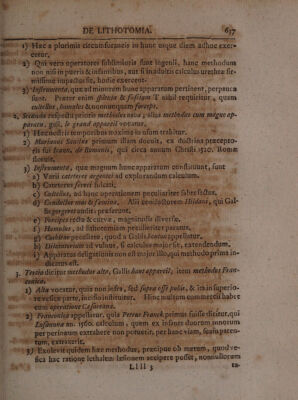 DE LITHOTOMIA. 637
1) Hæc a plurimis circumforaneis in hunc usque diem adhoc exer-
cetur.
2) Qui vero operatores sublimioris sunt ingenii, hanc methodum
non nisi in pueris & infantibus, aut si in adultis calculus urethræ fir-
mius impactus sit, hodie exercent.
3) Instrumenta, quæ ad minorem hunc apparatum pertinent, perpauca
sunt. Præter enim T nihil requiritur, quam
cultellus, hamulus & nonnunquam forceps.
2. Secundo respectu prioris methodus nova, aliàs methodus cum magno ap-
paratu, gall. le grand appareil vocatur.
1) Hæc nostris temporibus maxime in usum trahitur.
2) Marianus Sanctus primum illam docuit, ex doctrina præcepto-
ris sui de Romanis, qui circa annum Christi 1520. Romæ
floruit.
3) Instrumenta, quæ magnum hunc apparatum constituunt, sunt
a) Varii catheteres argentei ad explorandum calculum.
b) Catheteres ferrei sulcati,
c) Cultellus, ad hanc operationem peculiariter faberfactus.
d) Conductor mas & fœmina. Alii conductorem Hildani, qui Gal-
lis gorgeret audit, præferunt.
e) Forcipes recta & curva, magnitudine diversæ.
f) Hamulus, ad lithotomiam peculiariter paratus.
g) Cochlear peculiare, quod a Gallis bouton appellatur.
h) Dilatatorium ad vulnus, si calculus major sit, extendendum.
i) Apparatus deligationis non est major illo, qui methodo prima in-
dicatus est.
3. Tertio dicitur methodus alta, Gallis haut appareil, item methodus Fran-
conica.
1) Alta vocatur, quia non infra, sed supra osse pubis, & ita in superio-
re vesicæ parte, incisio instituitur. Hinc multum commercii habet
cum operatione Cæsarea.
2) Franconica appellatur, quia Petrus Franck primus fuisse dicitur, qui
Lausannæ an. 1560. calculum, quem ex infante duorum annorum
per perinæum extrahere non poterat, per hanc viam, seria peten-
tum, extraxerit.
3) Exolevit quidem hæc methodus, præcipue ob metum, quod ve-
sica hac ratione lethalem læsionem accipere posset, nonnullorum
Llll 3 ex-